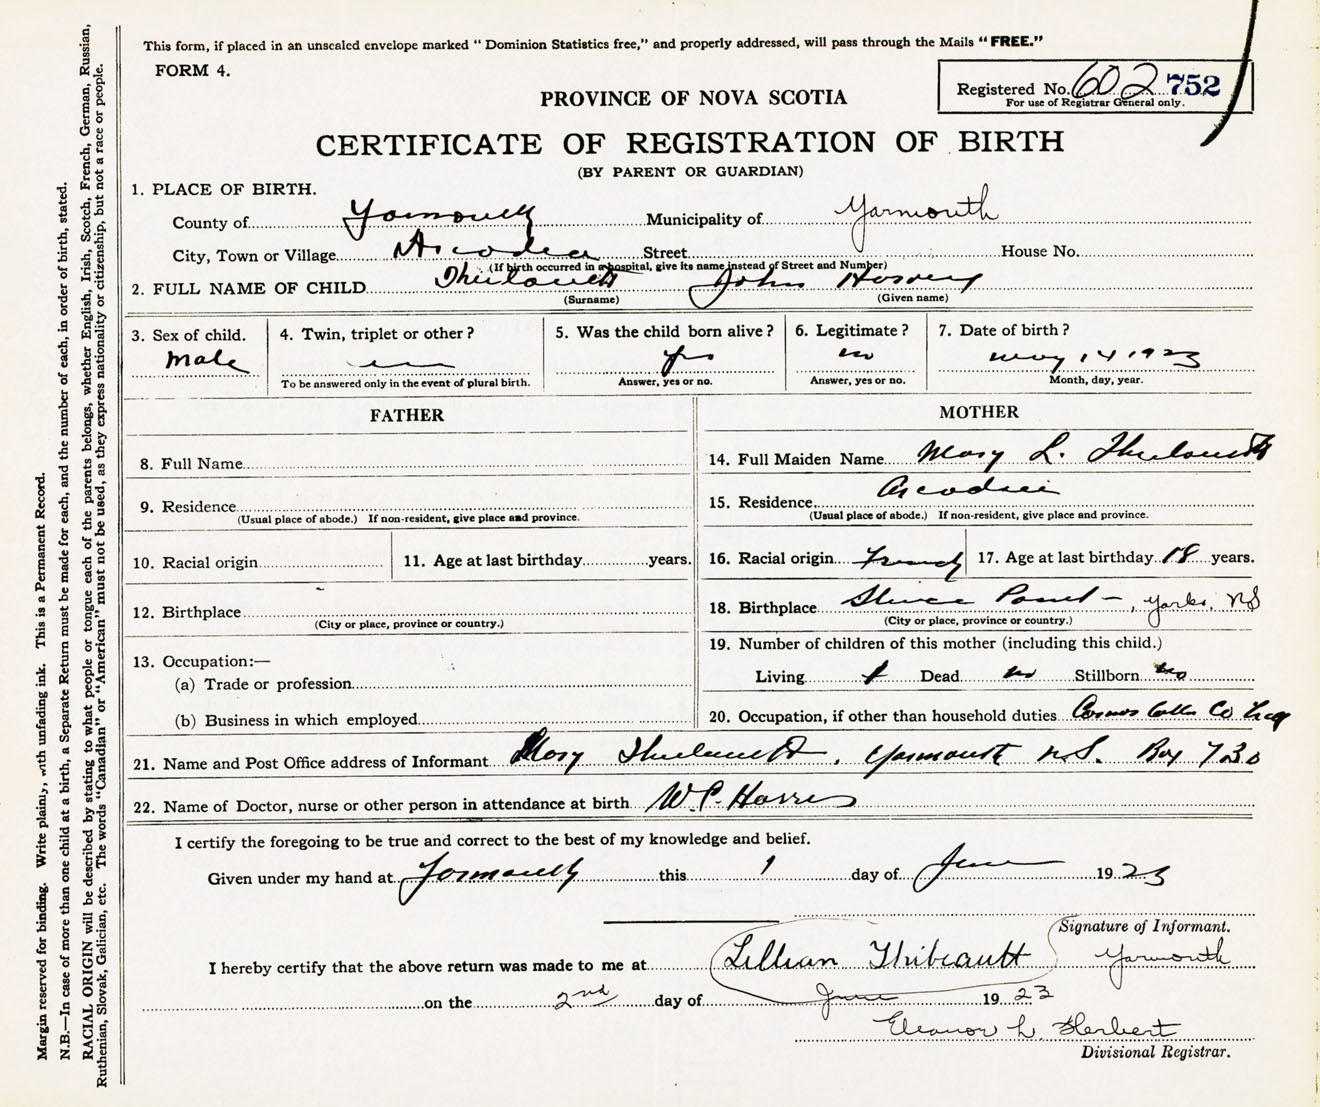 This form, if placed in an unsealed envelope marked "Dominion Statistics free," and properly addressed, will pass through the Mails "FREE."
FORM 4.
Registered No. 602 752
For use of Registrar General only.
PROVINCE OF NOVA SCOTIA
CERTIFICATE OF REGISTRATION OF BIRTH
(BY PARENT OR GUARDIAN)
1. PLACE OF BIRTH.
County of Yarmouth Municipality of Yarmouth
City, Town or Village Arcadia Street House No.
(If birth occurred in a hospital, give its name instead of Street and Number)
2. FULL NAME OF CHILD John Harvey
(Surname) (Given name)
3. Sex of child. 4. Twin, triplet or other? 5. Was the child born alive? 6. Legitimate? 7. Date of birth?
Male yes no May 14 1923
To be answered only in the event of plural birth. Answer, yes or no. Answer, yes or no. Month, day, year.
FATHER MOTHER
8. Full Name 14. Full Maiden Name Mary L.
9. Residence 15. Residence Arcadia
(Usual place of abode.) If non-resident, give place and province. (Usual place of abode.) If non-resident, give place and province.
10. Racial origin 11. Age at last birthday years. 16. Racial origin French 17. Age at last birthday 18 years.
12. Birthplace 18. Birthplace , NS
(City or place, province or country.) (City or place, province or country.)
13. Occupation:— 19. Number of children of this mother (including this child.)
(a) Trade or profession Living 1 Dead no Stillborn no
(b) Business in which employed 20. Occupation, if other than household duties
21. Name and Post Office address of Informant Mary , Yarmouth N.S. Box 730
22. Name of Doctor, nurse or other person in attendance at birth W.P. Harris
I certify the foregoing to be true and correct to the best of my knowledge and belief.
Given under my hand at Yarmouth this 1 day of June 1923
Signature of Informant.
I hereby certify that the above return was made to me at Lillian Thibeault Yarmouth
on the 2nd day of June 1923
Eleanor L. Herbert
Divisional Registrar.
Margin reserved for binding. Write plainly, with unfading ink. This is a Permanent Record.
N.B.—In case of more than one child at a birth, a Separate Return must be made for each, and the number of each, in order of birth, stated.
RACIAL ORIGIN will be described by stating to what people or tongue each of the parents belongs, whether English, Irish, Scotch, French, German, Russian,
Ruthenian, Slovak, Galician, etc. The words "Canadian" or "American" must not be used, as they express nationality or citizenship, but not a race or people.